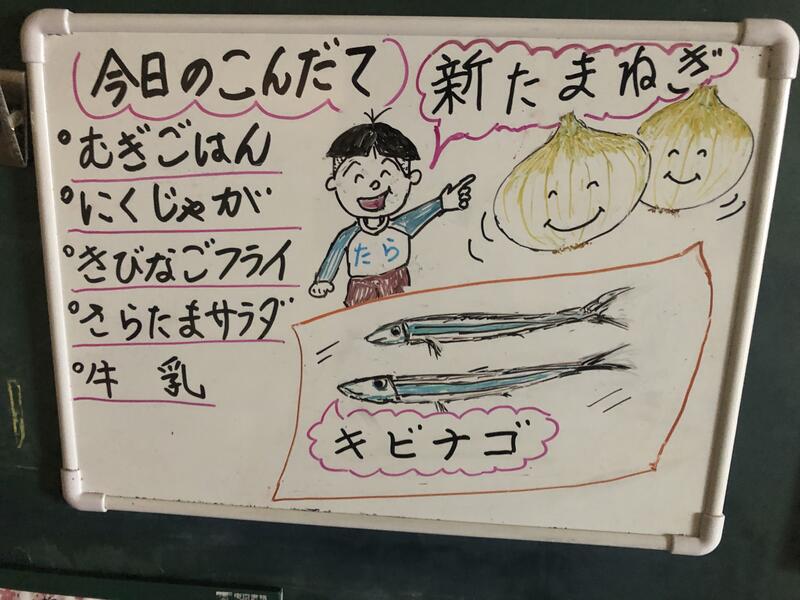 今日のこんだて
むぎごはん
にくじゃが
きびなごフライ
さらたまサラダ
牛乳
新たまねぎ
たら
キビナゴ